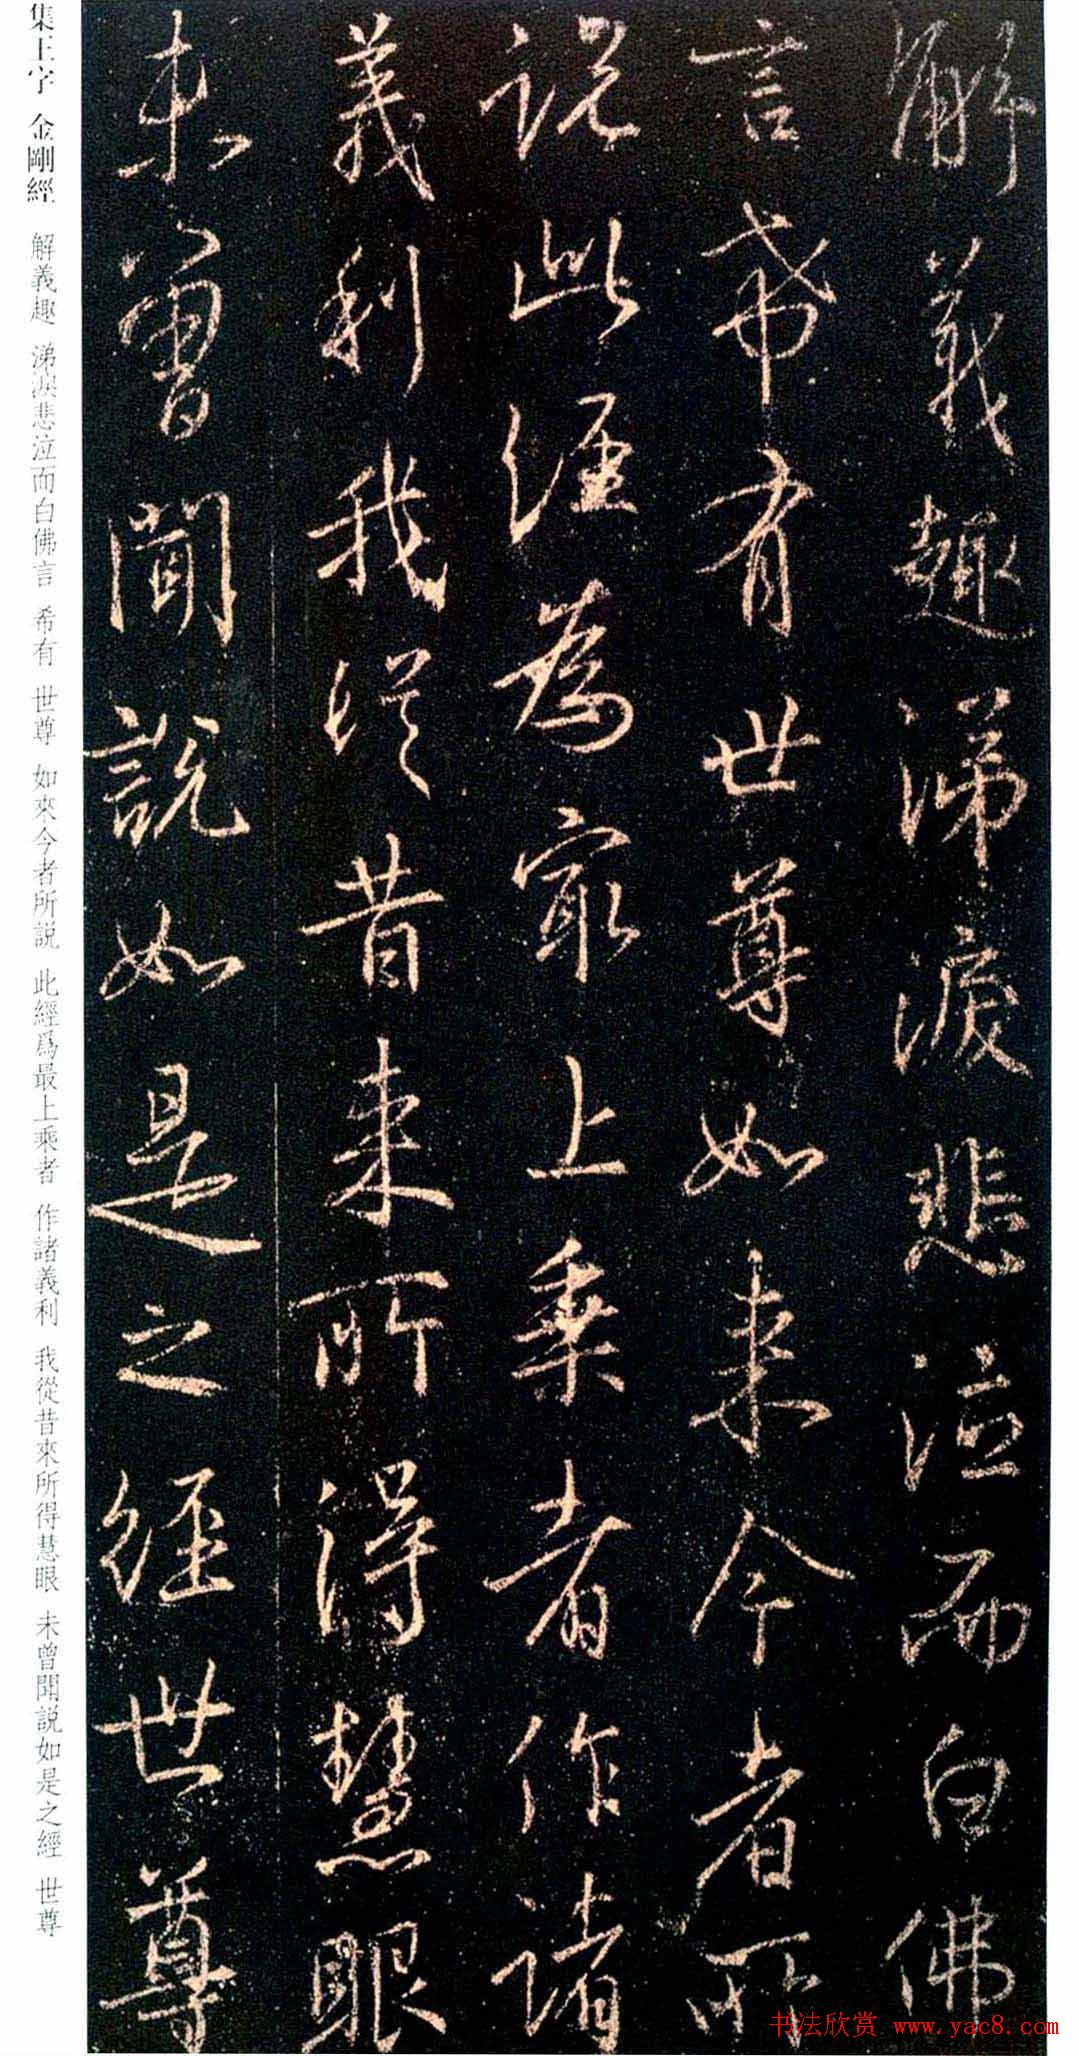 解義趣涕淚悲泣而白佛
言希有世尊如来今者所
説此經為最上乗者作諸
義利我從昔来所得慧眼
未曽聞説如是之經世尊
集王字 金剛經 解義趣 涕淚悲泣而白佛言 希有 世尊 如來今者所説 此經爲最上乘者 作諸義利 我從昔來所得慧眼 未曾聞説如是之經 世尊
书法欣赏 www.yac8.com